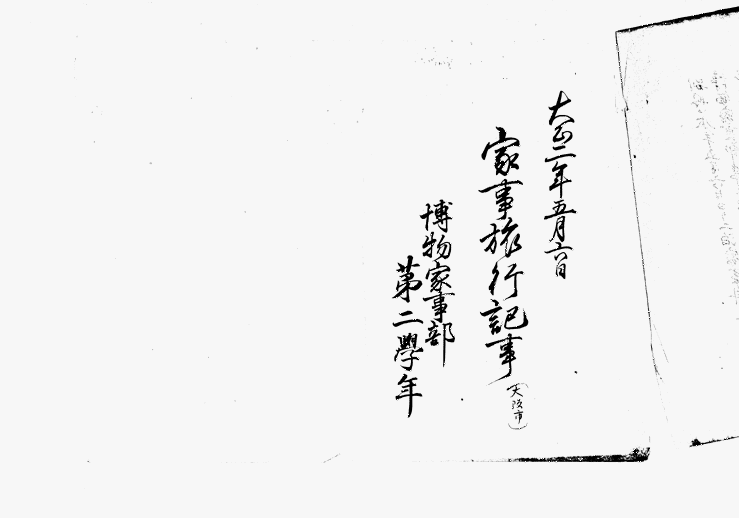 大正二年五月六日
家事旅行記事
(大阪市)
博物家事部
第二學年